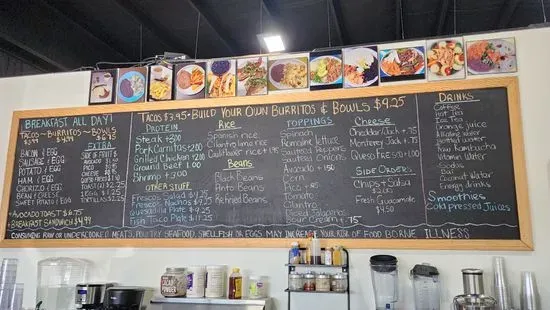 BREAKFAST ALL DAY!
TACOS ~ BURRITOS ~ BOWLS
BACON / EGG
SAUSAGE / EGG
POTATO / EGG
HAM / EGG
CHORIZO / EGG
BEAN / EGG
SWEET POTATO / EGG
EXTRA
SIDE OF FRUIT
AVOCADO
EGG
*AVOCADO TOAST $6.75
*BREAKFAST SANDWICH $4.99
TACOS $3.95 ~ BUILD YOUR OWN BURRITOS & BOWLS $9.25
PROTEIN
Steak
Pork Carnitas
Grilled Chicken
Ground Beef
Shrimp
OTHER STUFF
Fresco Salad
Fresco Nachos
Quesadilla Plate
Fish Taco Plate
Rice
Spanish rice
Cilantro lime rice
Cauliflower rice
Beans
Black Beans
Pinto Beans
Refried Beans
TOPPINGS
Spinach
Romaine lettuce
Sauteed Peppers
Sauteed Onions
Avocado
Corn
Pico
Tomato
Cilantro
Sliced Jalapenos
Sour Cream + .75
Cheese
Cheddar/Jack + .75
Monterey Jack + .75
Queso Fresco
Side Orders:
Chips + Salsa
$2.95
Fresh Guacamole
$4.50
DRINKS
Coffee
Hot Tea
Ice Tea
Orange Juice
Alkaline Water
Bottled Water
Kombucha
Vitamin Water
Sodas
Coconut Water
Energy drinks
Smoothies
Cold pressed Juices
CONSUMING RAW OR UNDERCOOKED MEATS, POULTRY, SEAFOOD, SHELLFISH OR EGGS MAY INCREASE YOUR RISK OF FOOD BORNE ILLNESS
POWDER